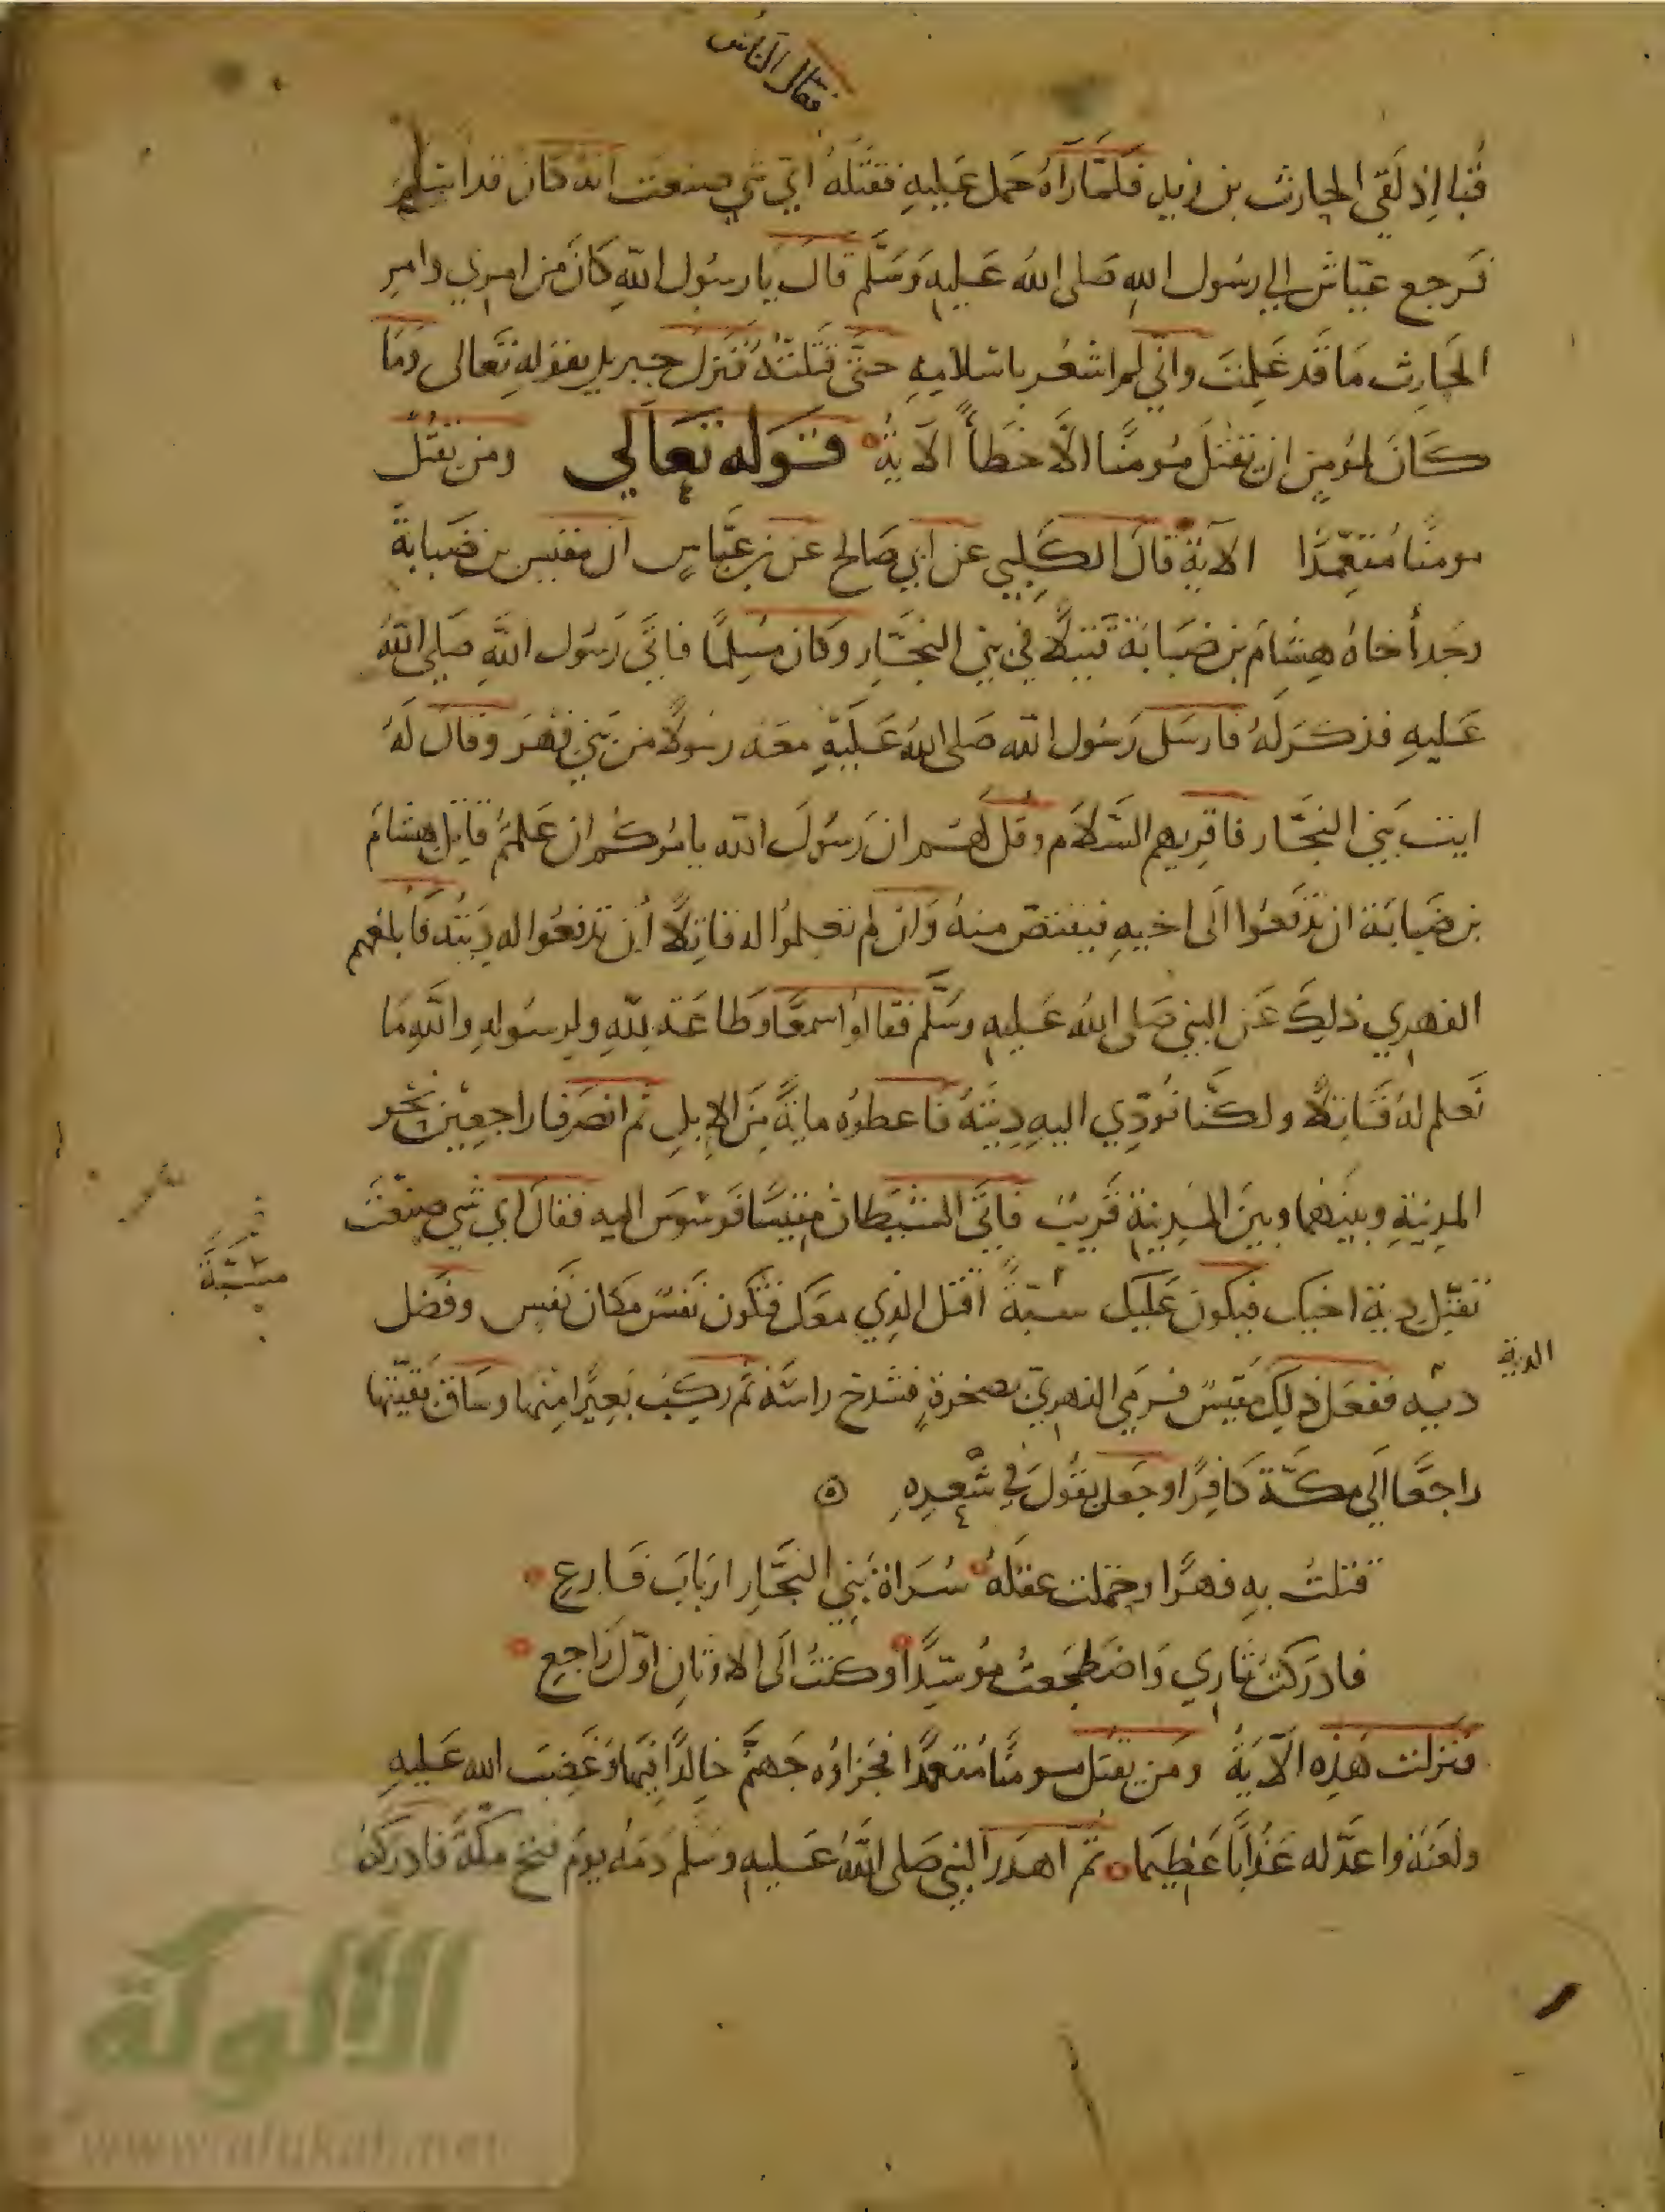 فقال الناس
قبا اذ لقي الحارث بن زيد فلمّا رآه حمل عليه فقتله اي شي صنعت انه كان قد اسلم
فرجع عيّاش الى رسول الله صلى الله عليه وسلم قال يا رسول الله كان من امري وامر
الحارث ما قد علمت واني لم اشعر باسلامه حتى قتلته فنزل جبريل بقوله تعالى وما
كان لمؤمن ان يقتل مومنا الا خطأ الآية قوله تعالي ومن يقتل
مومنا متعمّدا الآية قال الكلبي عن ابي صالح عن بن عبّاس ان مقيس بن ضبابة
وجد أخاه هشام بن ضبابة قتيلا في بني النجّار وكان مسلما فاتى رسول الله صلى الله
عليه فذكر له فارسل رسول الله صلى الله عليه معه رسولا من بني فهر وقال له
ايت بني النجّار فاقريهم السّلام وقل لهم ان رسول الله يامركم ان علمتم قاتل هشام
بن ضبابة ان تدفعوا الى اخيه فيقتصّ منه وان لم تعلموا له قاتلا أن تدفعوا له ديته فابلغهم
الفهري ذلك عن النبي صلى الله عليه وسلم فقالوا سمعا وطاعة لله ولرسوله والله ما
نعلم له قاتلا ولكنّا نودّي اليه ديته فاعطوه ماية من الابل ثم انصرفا راجعين نحو
المدينة وبينهما وبين المدينة قريب فاتى الشيطان مقيسا فوسوس اليه فقال اي شي صنعت
تقبل دية اخيك فيكون عليك سبّة اقتل الذي معك فتكون نفس مكان نفس وفضل
مسبّة
الدية
ديه ففعل ذلك مقيس فرمى الفهريّ بصخرة فشدخ راسه ثم ركب بعيرا منها وساق بقيّتها
راجعا الى مكّة كافرا وجعل يقول في شعره
قتلت به فهرا وحملت عقله سراة بني النجّار ارباب فارع
فادركت ثاري واضطجعت موسّدا وكنت الى الاوثان اوّل راجع
فنزلت هذه الآية ومن يقتل مومنا متعمدا فجزاوه جهنم خالدا فيها وغضب الله عليه
ولعنه واعدّ له عذابا عظيما ثم اهدر النبي صلى الله عليه وسلم دمه يوم فتح مكّة فادركه
الألوكة
www.alukah.net